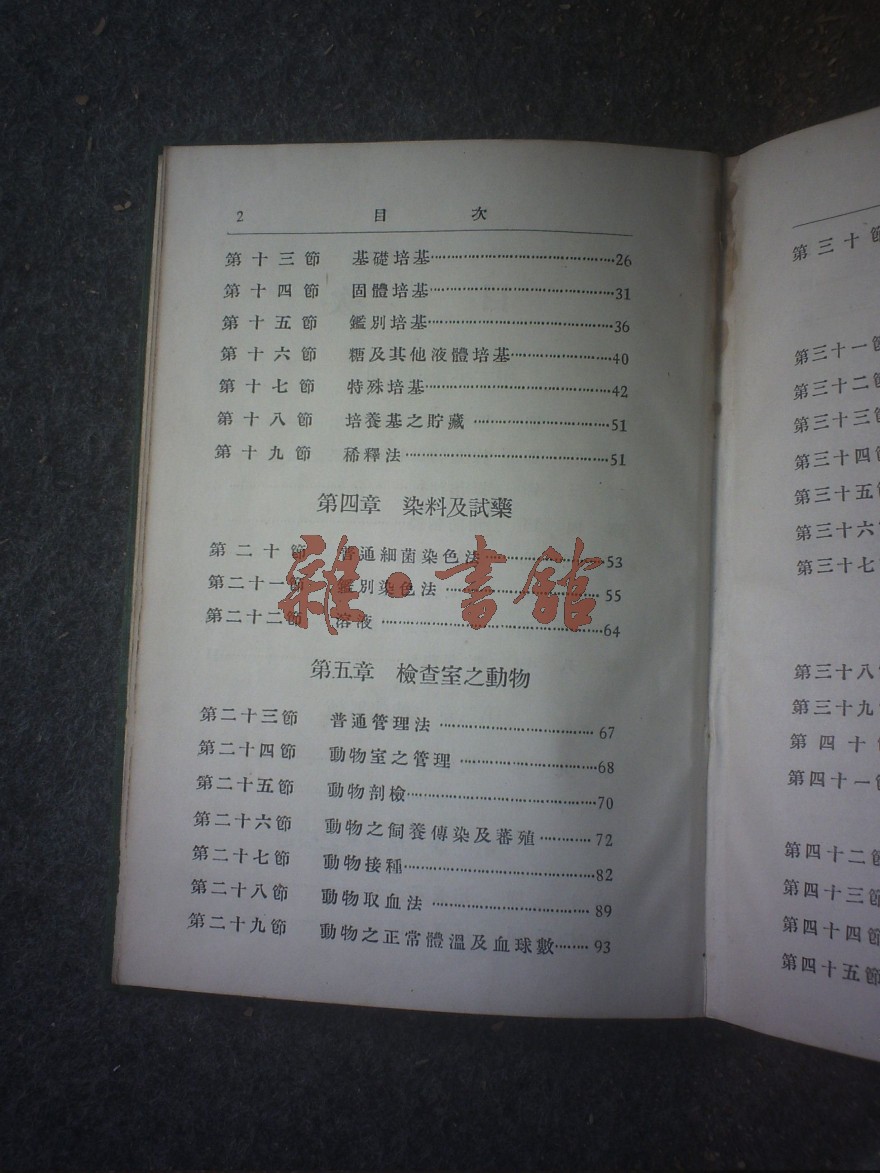 2 目次
第十三節 基礎培基………………26
第十四節 固體培基………………31
第十五節 鑑別培基………………36
第十六節 糖及其他液體培基………………40
第十七節 特殊培基………………42
第十八節 培養基之貯藏………………51
第十九節 稀釋法………………51
第四章 染料及試藥
第二十節 普通細菌染色法………………53
第二十一節 鑑別染色法………………55
第二十二節 溶液………………64
第五章 檢查室之動物
第二十三節 普通管理法………………67
第二十四節 動物室之管理………………68
第二十五節 動物剖檢………………70
第二十六節 動物之飼養傳染及蕃殖………72
第二十七節 動物接種………………82
第二十八節 動物取血法………………89
第二十九節 動物之正常體溫及血球數………93
雜·書館
第三十節
第三十一節
第三十二節
第三十三節
第三十四節
第三十五節
第三十六
第三十七
第三十八
第三十九
第四十
第四十一節
第四十二節
第四十三節
第四十四節
第四十五節